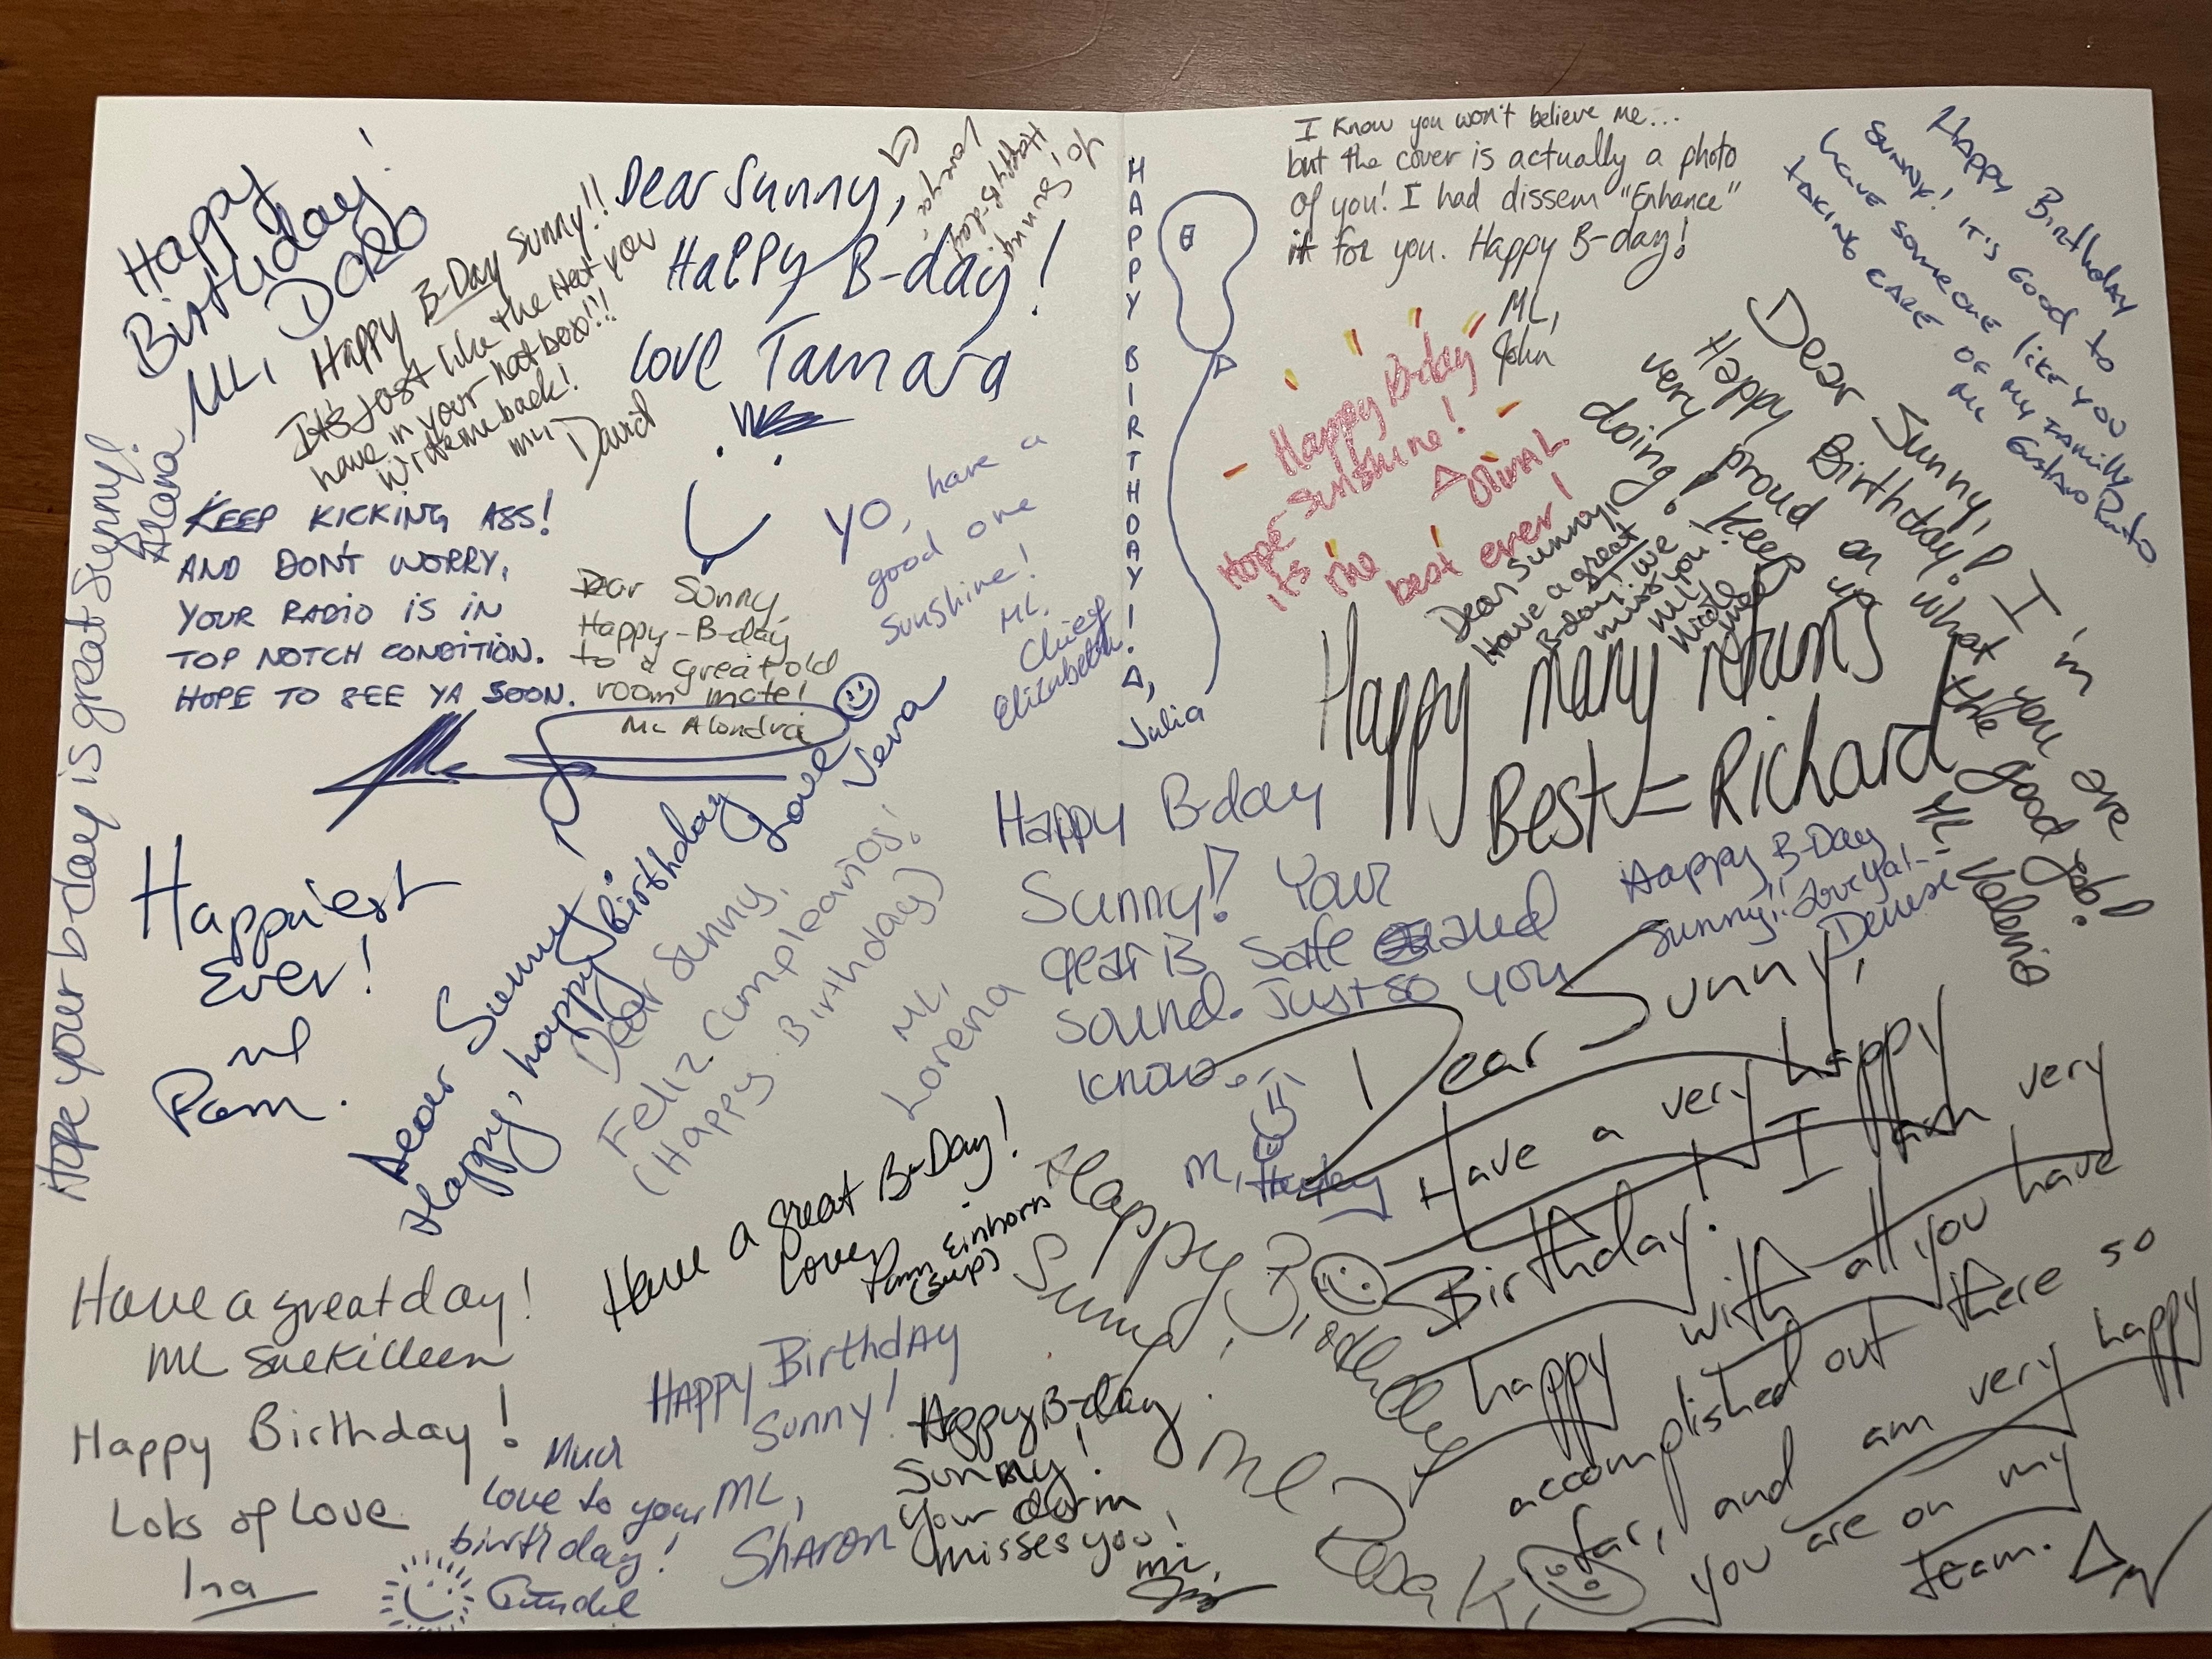 Happy
Birthday!
ML,
Happy B-Day Sunny!!
It's just like the Heat you
have in your hot box!!!
Write me back!
ML
David
Dear Sunny,
Happy B-day!
Love Tamara
Yo, Sunny
Happy B-day
Hope your b-day is great Sunny!
Alana
KEEP KICKING ASS!
AND DON'T WORRY,
YOUR RADIO IS IN
TOP NOTCH CONDITION.
HOPE TO SEE YA SOON.
Dear Sunny,
Happy-B-day
to a great old
room mate!
ML Alondra
YO, have a
good one
Sunshine!
ML,
Chief
Elizabeth
Happiest
Ever!
ML
Pam.
Dear Sunny
Happy, happy birthday!
Love
Vera
Dear Sunny,
Feliz Cumpleaños!
(Happy Birthday)
ML,
Lorena
Have a great day!
ML Sue Killeen
Happy Birthday!
Lots of Love
Ina
Have a great B-Day!
Love,
Pam Einhorn
(Sup)
Happy Birthday
Sunny!
ML,
Sharon
Much
love to your
birthday!
Happy B-day
Sunny!
Your dorm
misses you!
ML,
HAPPY BIRTHDAY!
Julia
I know you won't believe me...
but the cover is actually a photo
of you! I had dissem "Enhance"
it for you. Happy B-day!
ML,
John
Happy Birthday
Sunny! It's good to
have someone like you
taking care of my family
ML Gustavo
Happy B-day
Sunshine!
Hope
its the best ever!
Dear Sunny,
Happy Birthday! I'm
very proud on what you are
doing! Keep up the good job!
ML Valerio
Dear Sunny,
Have a great
B-day! We
miss you!
ML
Happy many returns
Best = Richard
Happy B-day
Sunny! Your
gear is safe and
sound. Just so you
know.
ML, Hayley
Happy B-Day
Sunny!! Love ya!--
Denise
Happy Birthday
Sunny!
ML
Dear Sunny,
Have a very happy
Birthday! I am very
happy with all you have
accomplished out there so
far, and am very happy
you are on my
team.